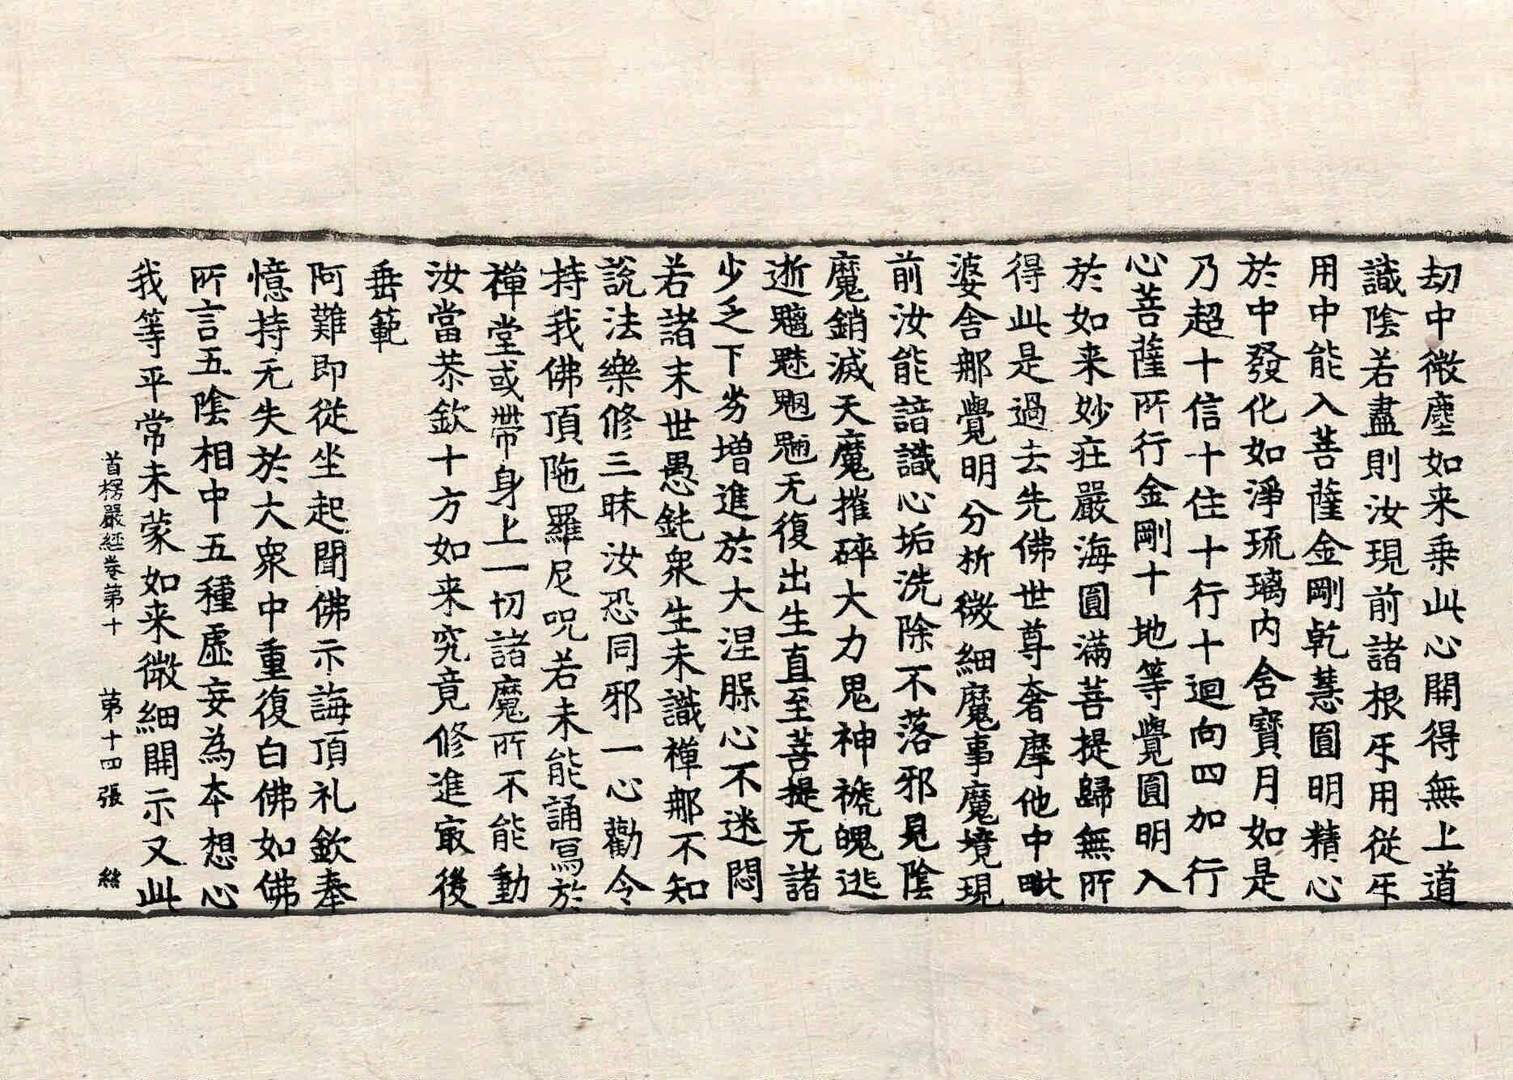 劫中微塵如来乗此心開得無上道
識陰若盡則汝現前諸根互用従互
用中能入菩薩金剛乾慧圓明精心
於中發化如淨琉璃内含寶月如是
乃超十信十住十行十迴向四加行
心菩薩所行金剛十地等覺圓明入
於如来妙莊嚴海圓滿菩提歸無所
得此是過去先佛世尊奢摩他中毗
婆舍那覺明分析微細魔事魔境現
前汝能諳識心垢洗除不落邪見陰
魔銷滅天魔摧碎大力鬼神褫魄逃
逝魑魅魍魎无復出生直至菩提无諸
少乏下劣增進於大涅脲心不迷悶
若諸末世愚鈍衆生未識禪那不知
説法樂修三昧汝恐同邪一心勸令
持我佛頂陁羅尼呪若未能誦寫於
禪堂或帶身上一切諸魔所不能動
汝當恭欽十方如来究竟修進㝡後
垂範
阿難即從坐起聞佛示誨頂礼欽奉
憶持无失於大衆中重復白佛如佛
所言五陰相中五種虚妄為本想心
我等平常未蒙如来微細開示又此
首楞嚴經卷第十 第十四張 緒